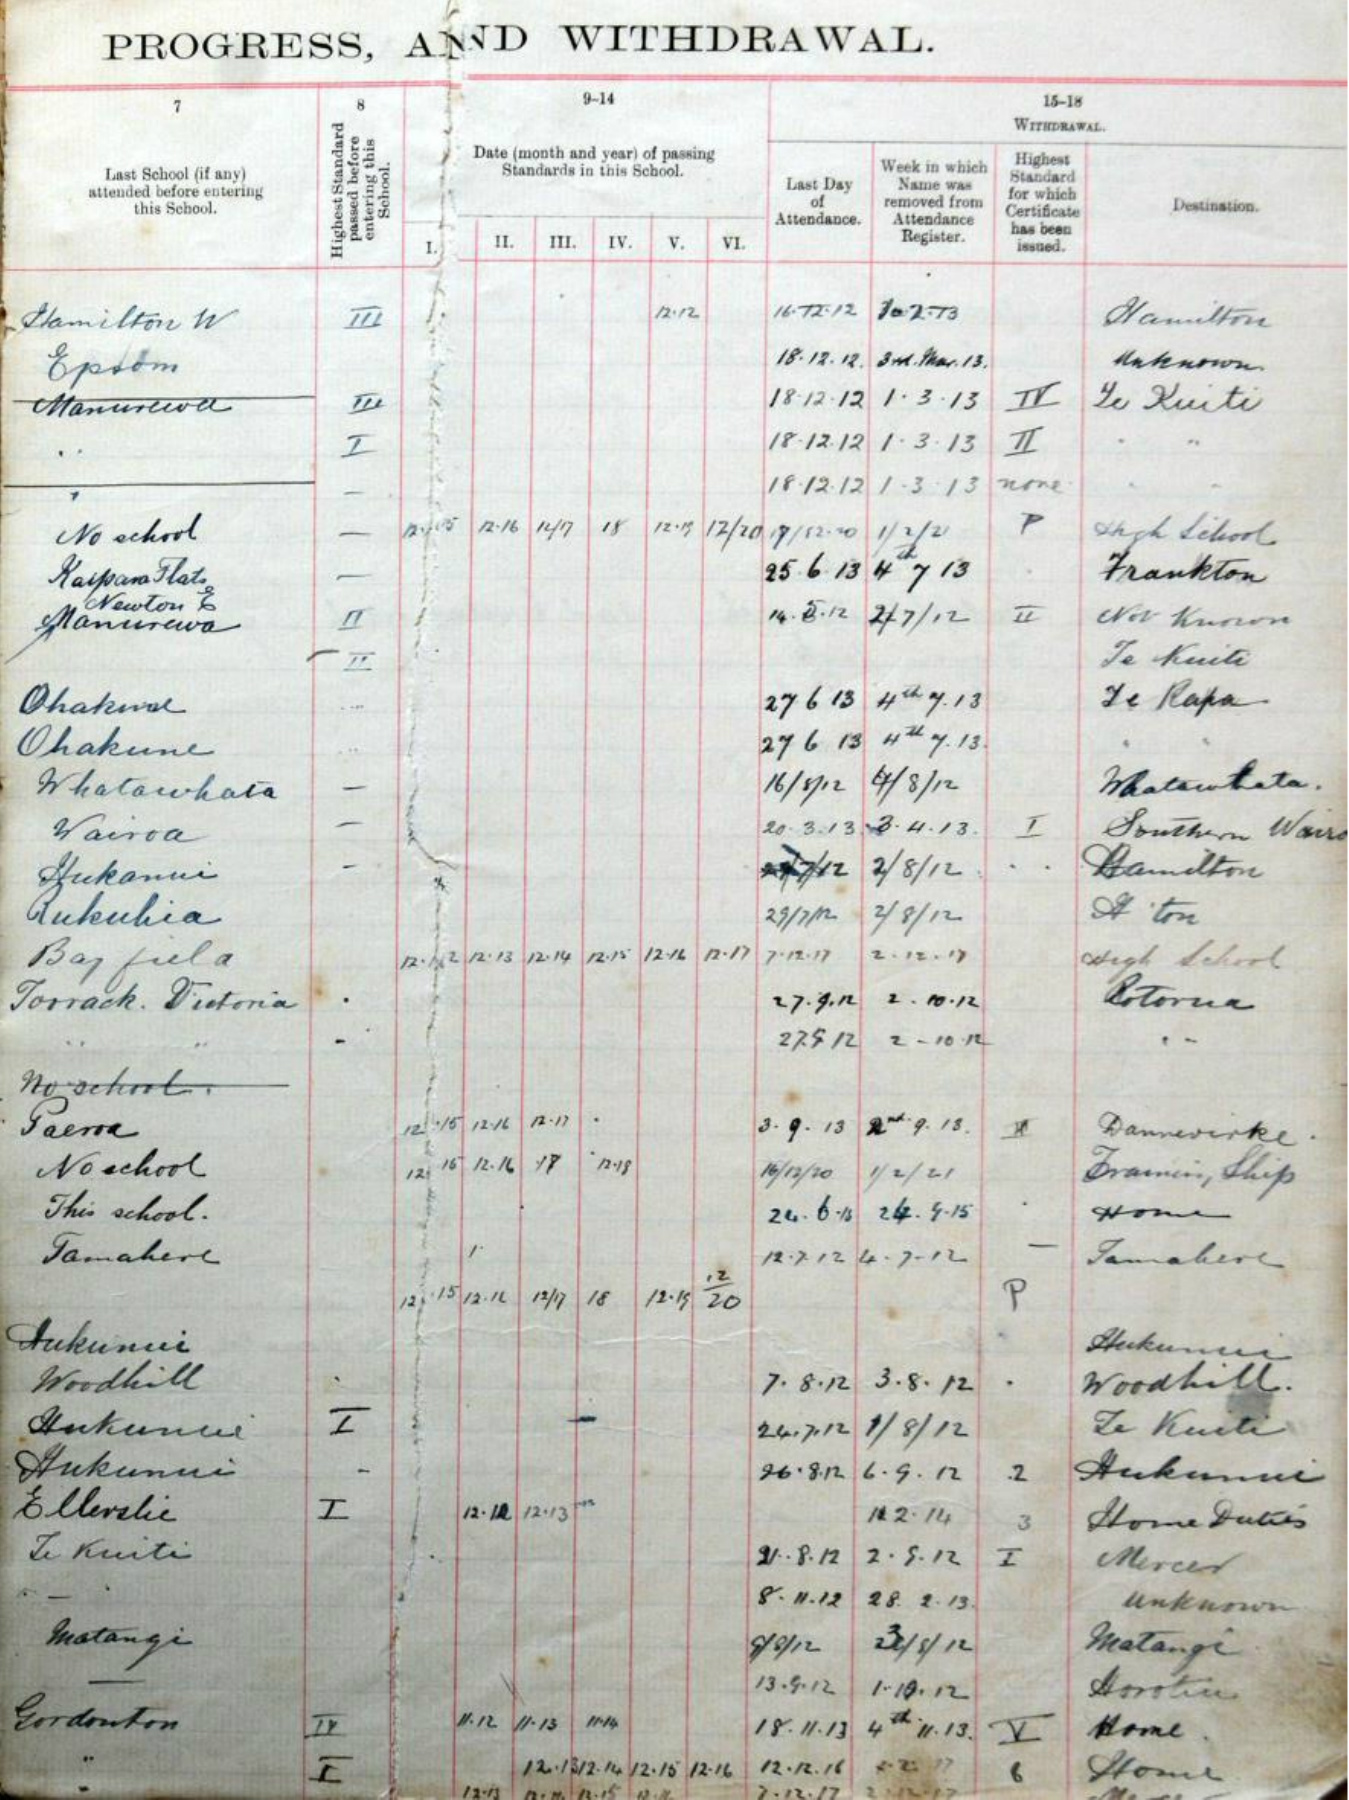 PROGRESS, AND WITHDRAWAL.
7 8 9–14 15–18
WITHDRAWAL.
Last School (if any) attended before entering this School.
Highest Standard passed before entering this School.
Date (month and year) of passing Standards in this School.
Last Day of Attendance.
Week in which Name was removed from Attendance Register.
Highest Standard for which Certificate has been issued.
Destination.
I. II. III. IV. V. VI.
Hamilton W III 12.12 16.12.12 Hamilton
Epsom 18.12.12. 3rd. Mar. 13. Unknown
Manurewa III 18.12.12 1.3.13 IV Te Kuiti
" I 18.12.12 1.3.13 II " "
" — 18.12.12 1.3.13 none " "
No school — 12.15 12.16 12/17 18 12.19 12/20 1/2/21 P High School
Kaipara Flats — 25.6.13 4th 7 13 Frankton
Newton E
Manurewa II 14.5.12 2/7/12 II Not Known
II Te Kuiti
Ohakune 27 6 13 4th 7.13 Te Rapa
Ohakune 27 6 13 4th 7.13. " "
Whatawhata — 16/8/12 4/8/12 Whatawhata.
Wairoa — 20.3.13 3.4.13. I Southern Wairo
Hukanui - 2/8/12 Hamilton
Rukuhia 29/7/12 2/8/12 H'ton
Bayfield 12.12 12.13 12.14 12.15 12.16 12.17 7.12.17 2.12.17 High School
Toorack. Victoria 27.9.12 2.10.12 Rotorua
" " - 27.9.12 2-10.12 " "
No school.
Paeroa 12.15 12.16 12.17 3.9.13 2nd 9.13. II Dannevirke.
No school 12 15 12.16 17 12.18 16/12/20 1/2/21 Training Ship
This school. 24.6.15 24.9.15 Home
Tamahere 12.7.12 4.7.12 — Tamahere
12.15 12.16 12/17 18 12.19 12/20 P
Hukunui Hukunui
Woodhill 7.8.12 3.8.12 Woodhill.
Hukunui I — 24.7.12 1/8/12 Te Kuiti
Hukunui - 26.8.12 6.9.12 2 Hukunui
Ellerslie I 12.12 12.13 2.14 3 Home Duties
Te Kuiti 21.8.12 2.9.12 I Mercer
" — 8.11.12 28.2.13. unknown
Matangi 9/8/12 Matangi
— 13.9.12 1.10.12 Horotiu
Gordonton IV 11.12 11.13 11.14 18.11.13 4th 11.13. V Home.
" I 12.13 12.14 12.15 12.16 12.12.16 6 Home
" 12.13 12.14 12.15 7.12.17